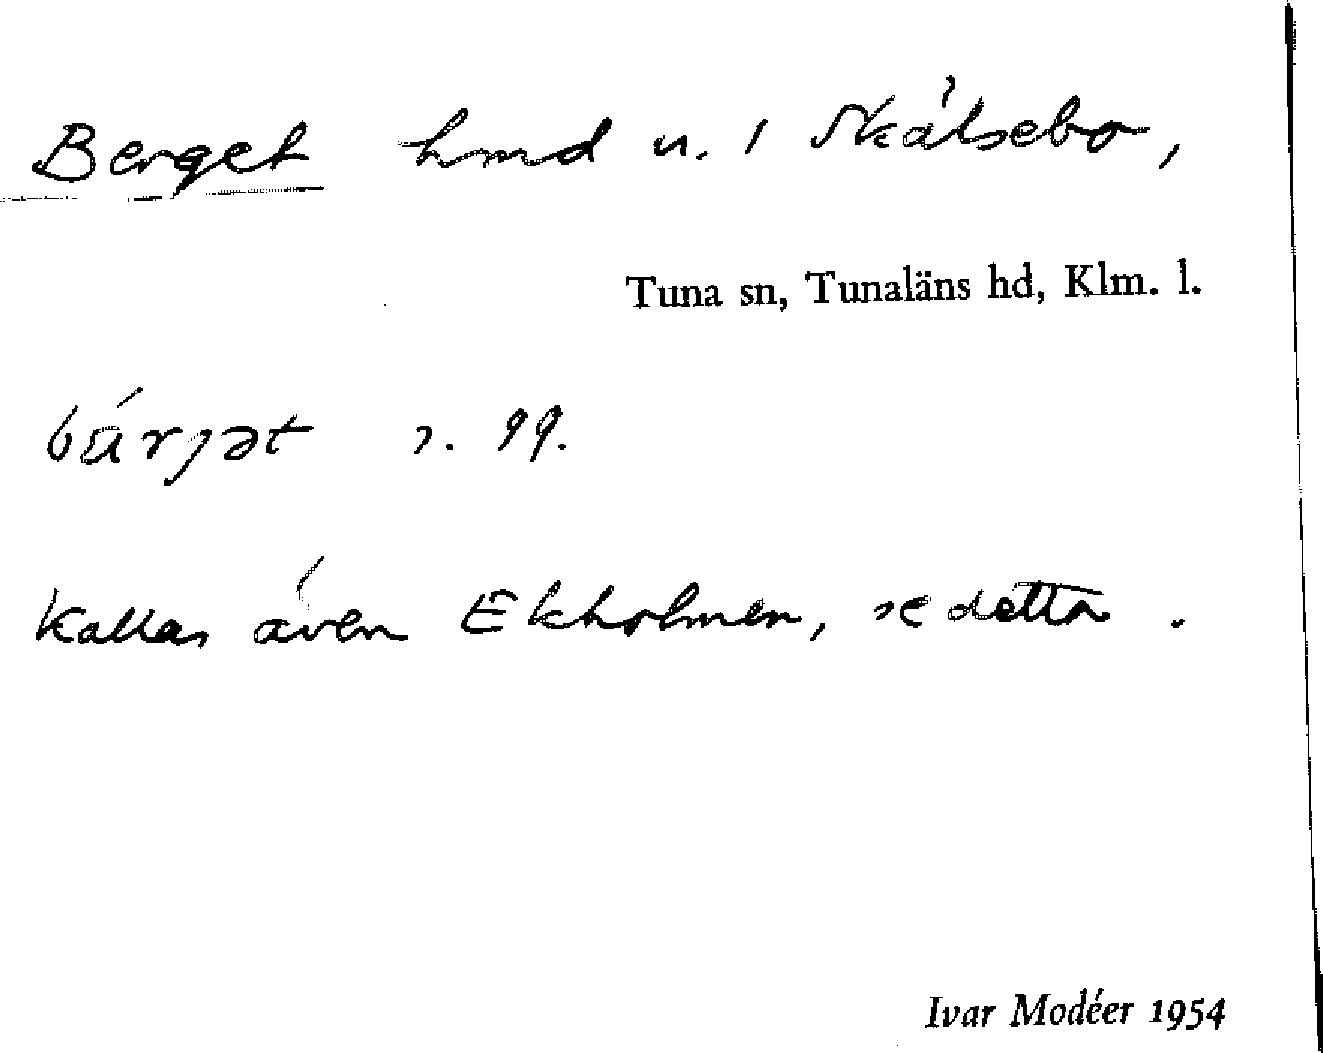 Berget hmd u. 1 Skälsebo,
Tuna sn, Tunaläns hd, Klm. l.
s. 99.
Kallas även Ekholmen, se detta.
Ivar Modéer 1954